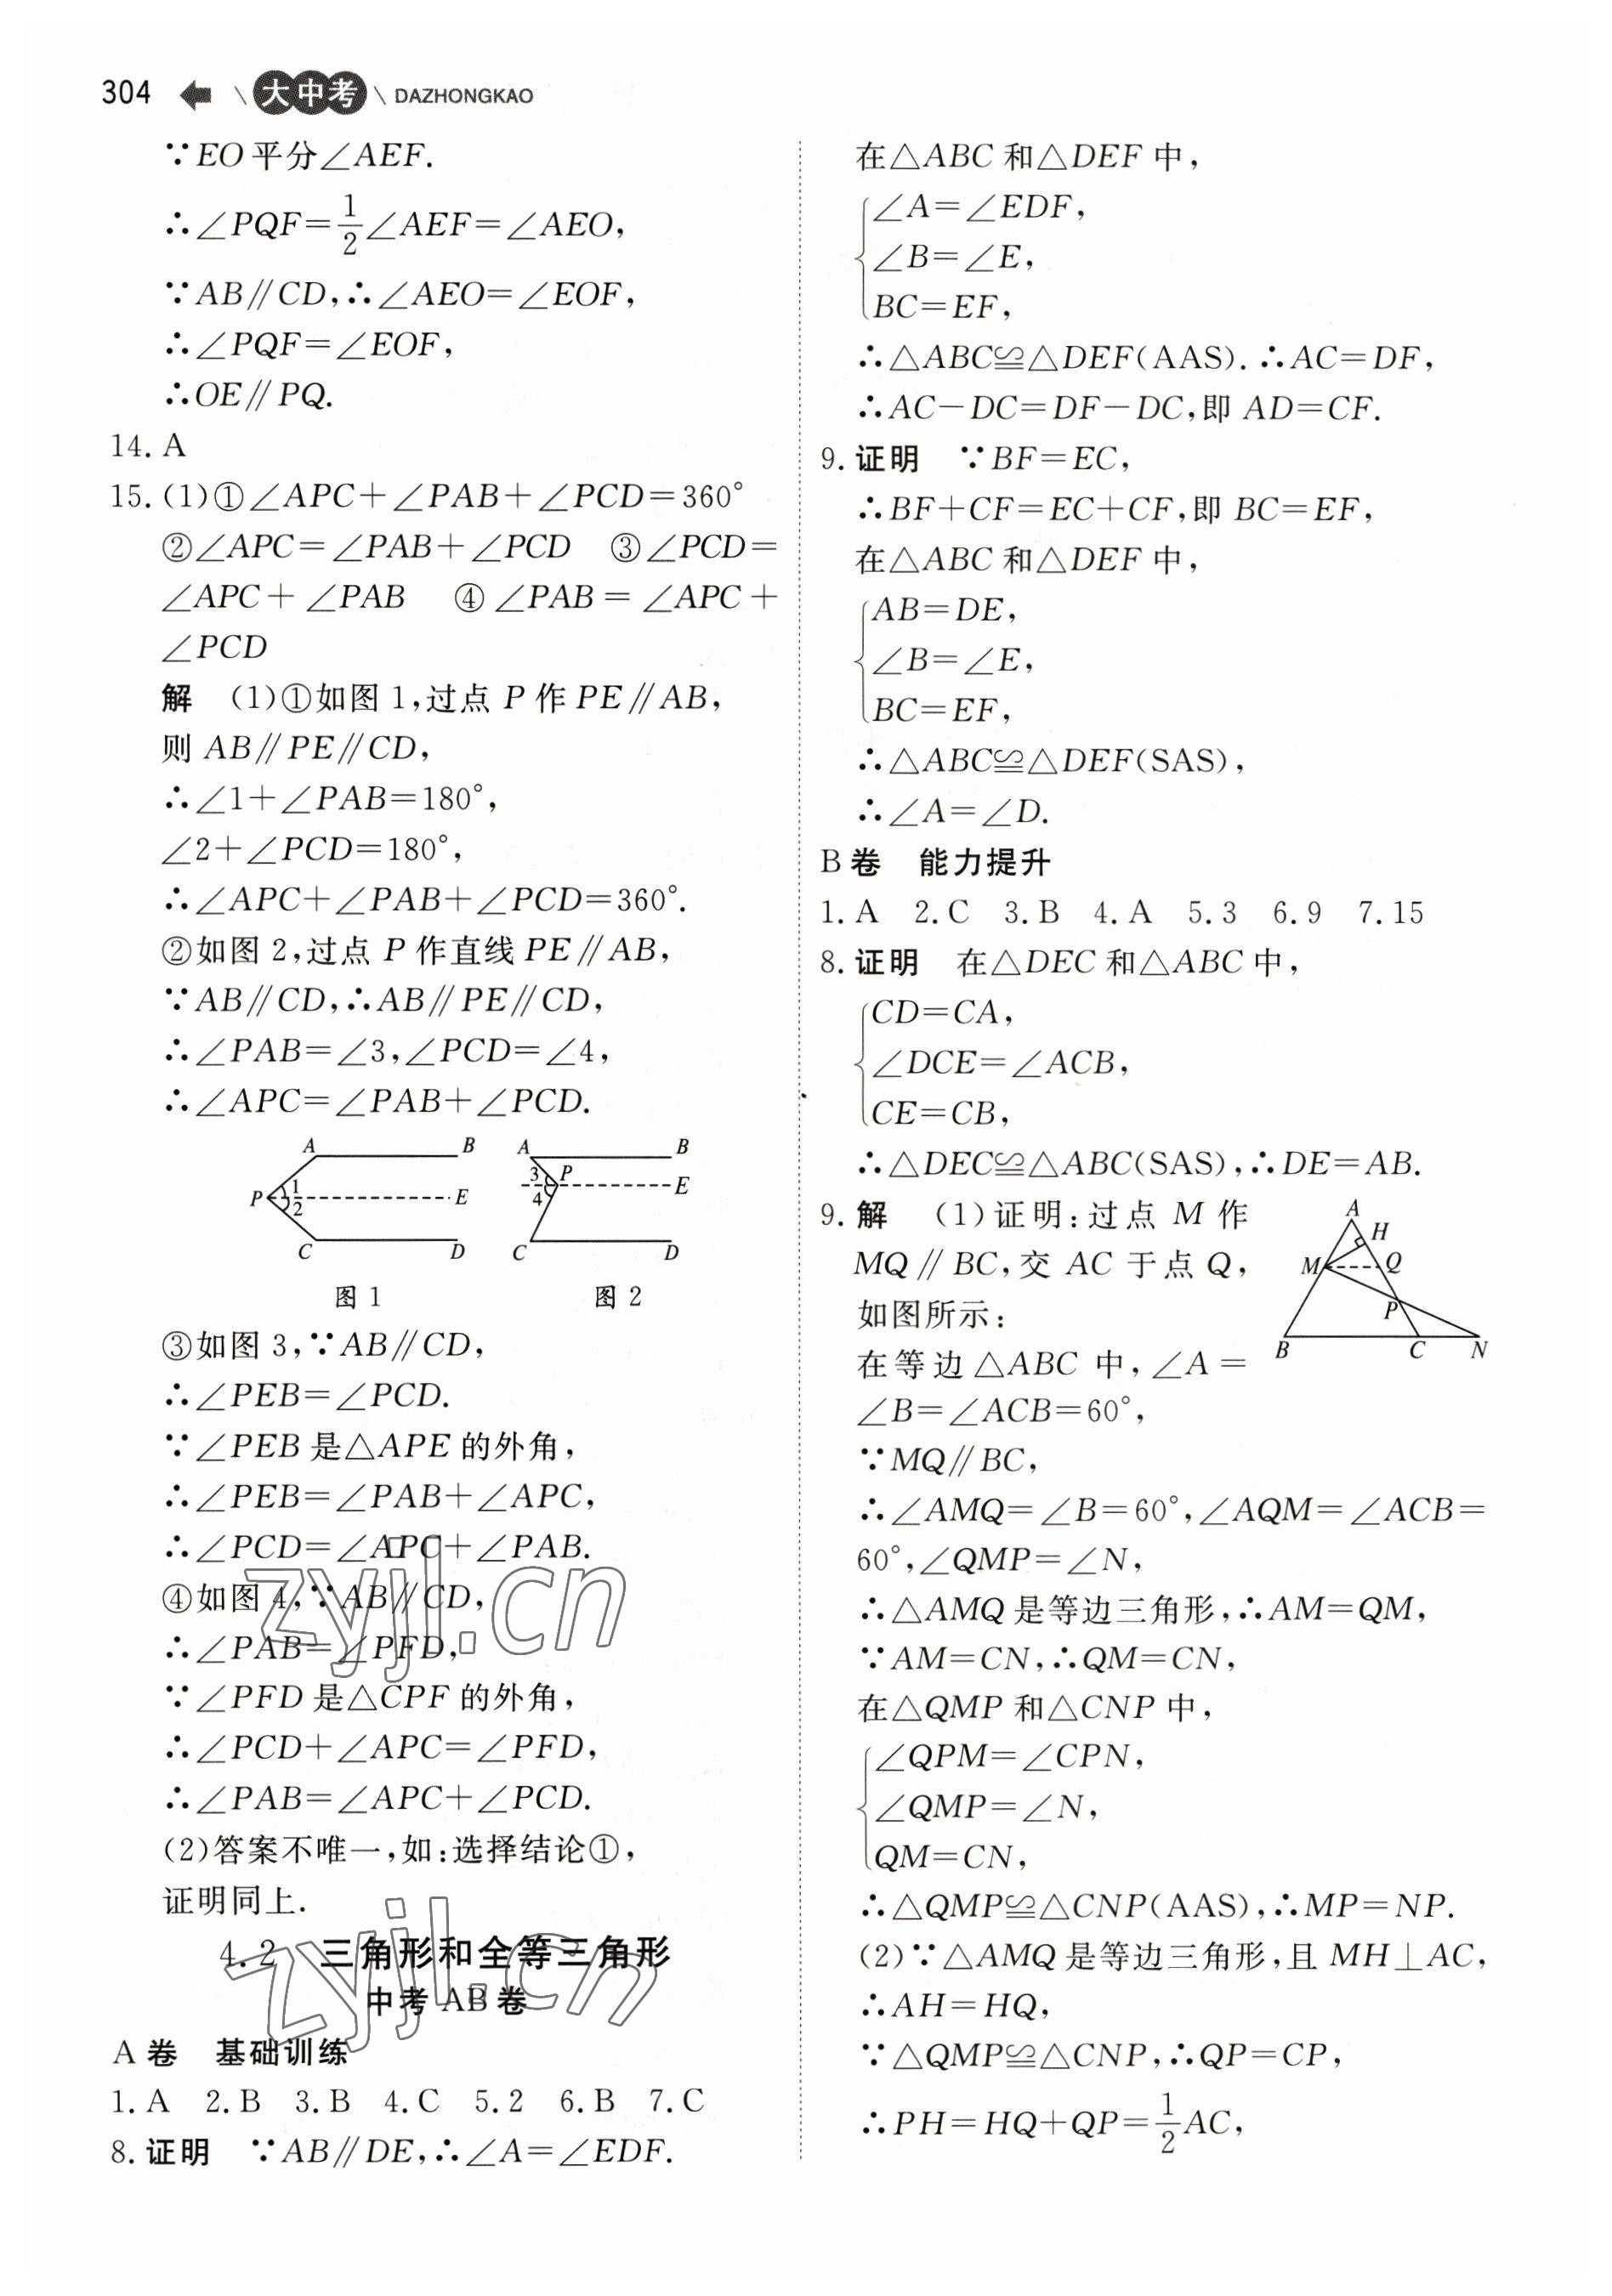 304 大中考 DAZHONGKAO
∵EO平分∠AEF.
∴∠PQF=1/2∠AEF=∠AEO,
∵AB∥CD,∴∠AEO=∠EOF,
∴∠PQF=∠EOF,
∴OE∥PQ.
14.A
15.(1)①∠APC+∠PAB+∠PCD=360°
②∠APC=∠PAB+∠PCD ③∠PCD=
∠APC+∠PAB ④∠PAB=∠APC+
∠PCD
解 (1)①如图1,过点P作PE∥AB,
则AB∥PE∥CD,
∴∠1+∠PAB=180°,
∠2+∠PCD=180°,
∴∠APC+∠PAB+∠PCD=360°.
②如图2,过点P作直线PE∥AB,
∵AB∥CD,∴AB∥PE∥CD,
∴∠PAB=∠3,∠PCD=∠4,
∴∠APC=∠PAB+∠PCD.
A B A B
P 1 2 E 3 P 4 E
C D C D
图1 图2
③如图3,∵AB∥CD,
∴∠PEB=∠PCD.
∵∠PEB是△APE的外角,
∴∠PEB=∠PAB+∠APC,
∴∠PCD=∠APC+∠PAB.
④如图4,∵AB∥CD,
∴∠PAB=∠PFD,
∵∠PFD是△CPF的外角,
∴∠PCD+∠APC=∠PFD,
∴∠PAB=∠APC+∠PCD.
(2)答案不唯一,如:选择结论①,
证明同上.
4.2 三角形和全等三角形
中考AB卷
A卷 基础训练
1.A 2.B 3.B 4.C 5.2 6.B 7.C
8.证明 ∵AB∥DE,∴∠A=∠EDF.
在△ABC和△DEF中,
∠A=∠EDF,
∠B=∠E,
BC=EF,
∴△ABC≌△DEF(AAS).∴AC=DF,
∴AC-DC=DF-DC,即AD=CF.
9.证明 ∵BF=EC,
∴BF+CF=EC+CF,即BC=EF,
在△ABC和△DEF中,
AB=DE,
∠B=∠E,
BC=EF,
∴△ABC≌△DEF(SAS),
∴∠A=∠D.
B卷 能力提升
1.A 2.C 3.B 4.A 5.3 6.9 7.15
8.证明 在△DEC和△ABC中,
CD=CA,
∠DCE=∠ACB,
CE=CB,
∴△DEC≌△ABC(SAS),∴DE=AB.
9.解 (1)证明:过点M作
MQ∥BC,交AC于点Q,
如图所示:
A
H
M Q
P
B C N
在等边△ABC中,∠A=
∠B=∠ACB=60°,
∵MQ∥BC,
∴∠AMQ=∠B=60°,∠AQM=∠ACB=
60°,∠QMP=∠N,
∴△AMQ是等边三角形,∴AM=QM,
∵AM=CN,∴QM=CN,
在△QMP和△CNP中,
∠QPM=∠CPN,
∠QMP=∠N,
QM=CN,
∴△QMP≌△CNP(AAS),∴MP=NP.
(2)∵△AMQ是等边三角形,且MH⊥AC,
∴AH=HQ,
∵△QMP≌△CNP,∴QP=CP,
∴PH=HQ+QP=1/2AC,
zyjl.cn
zyjl.cn